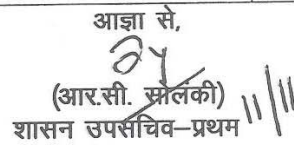 आज्ञा से,
(आर.सी. सोलंकी)
शासन उपसचिव–प्रथम